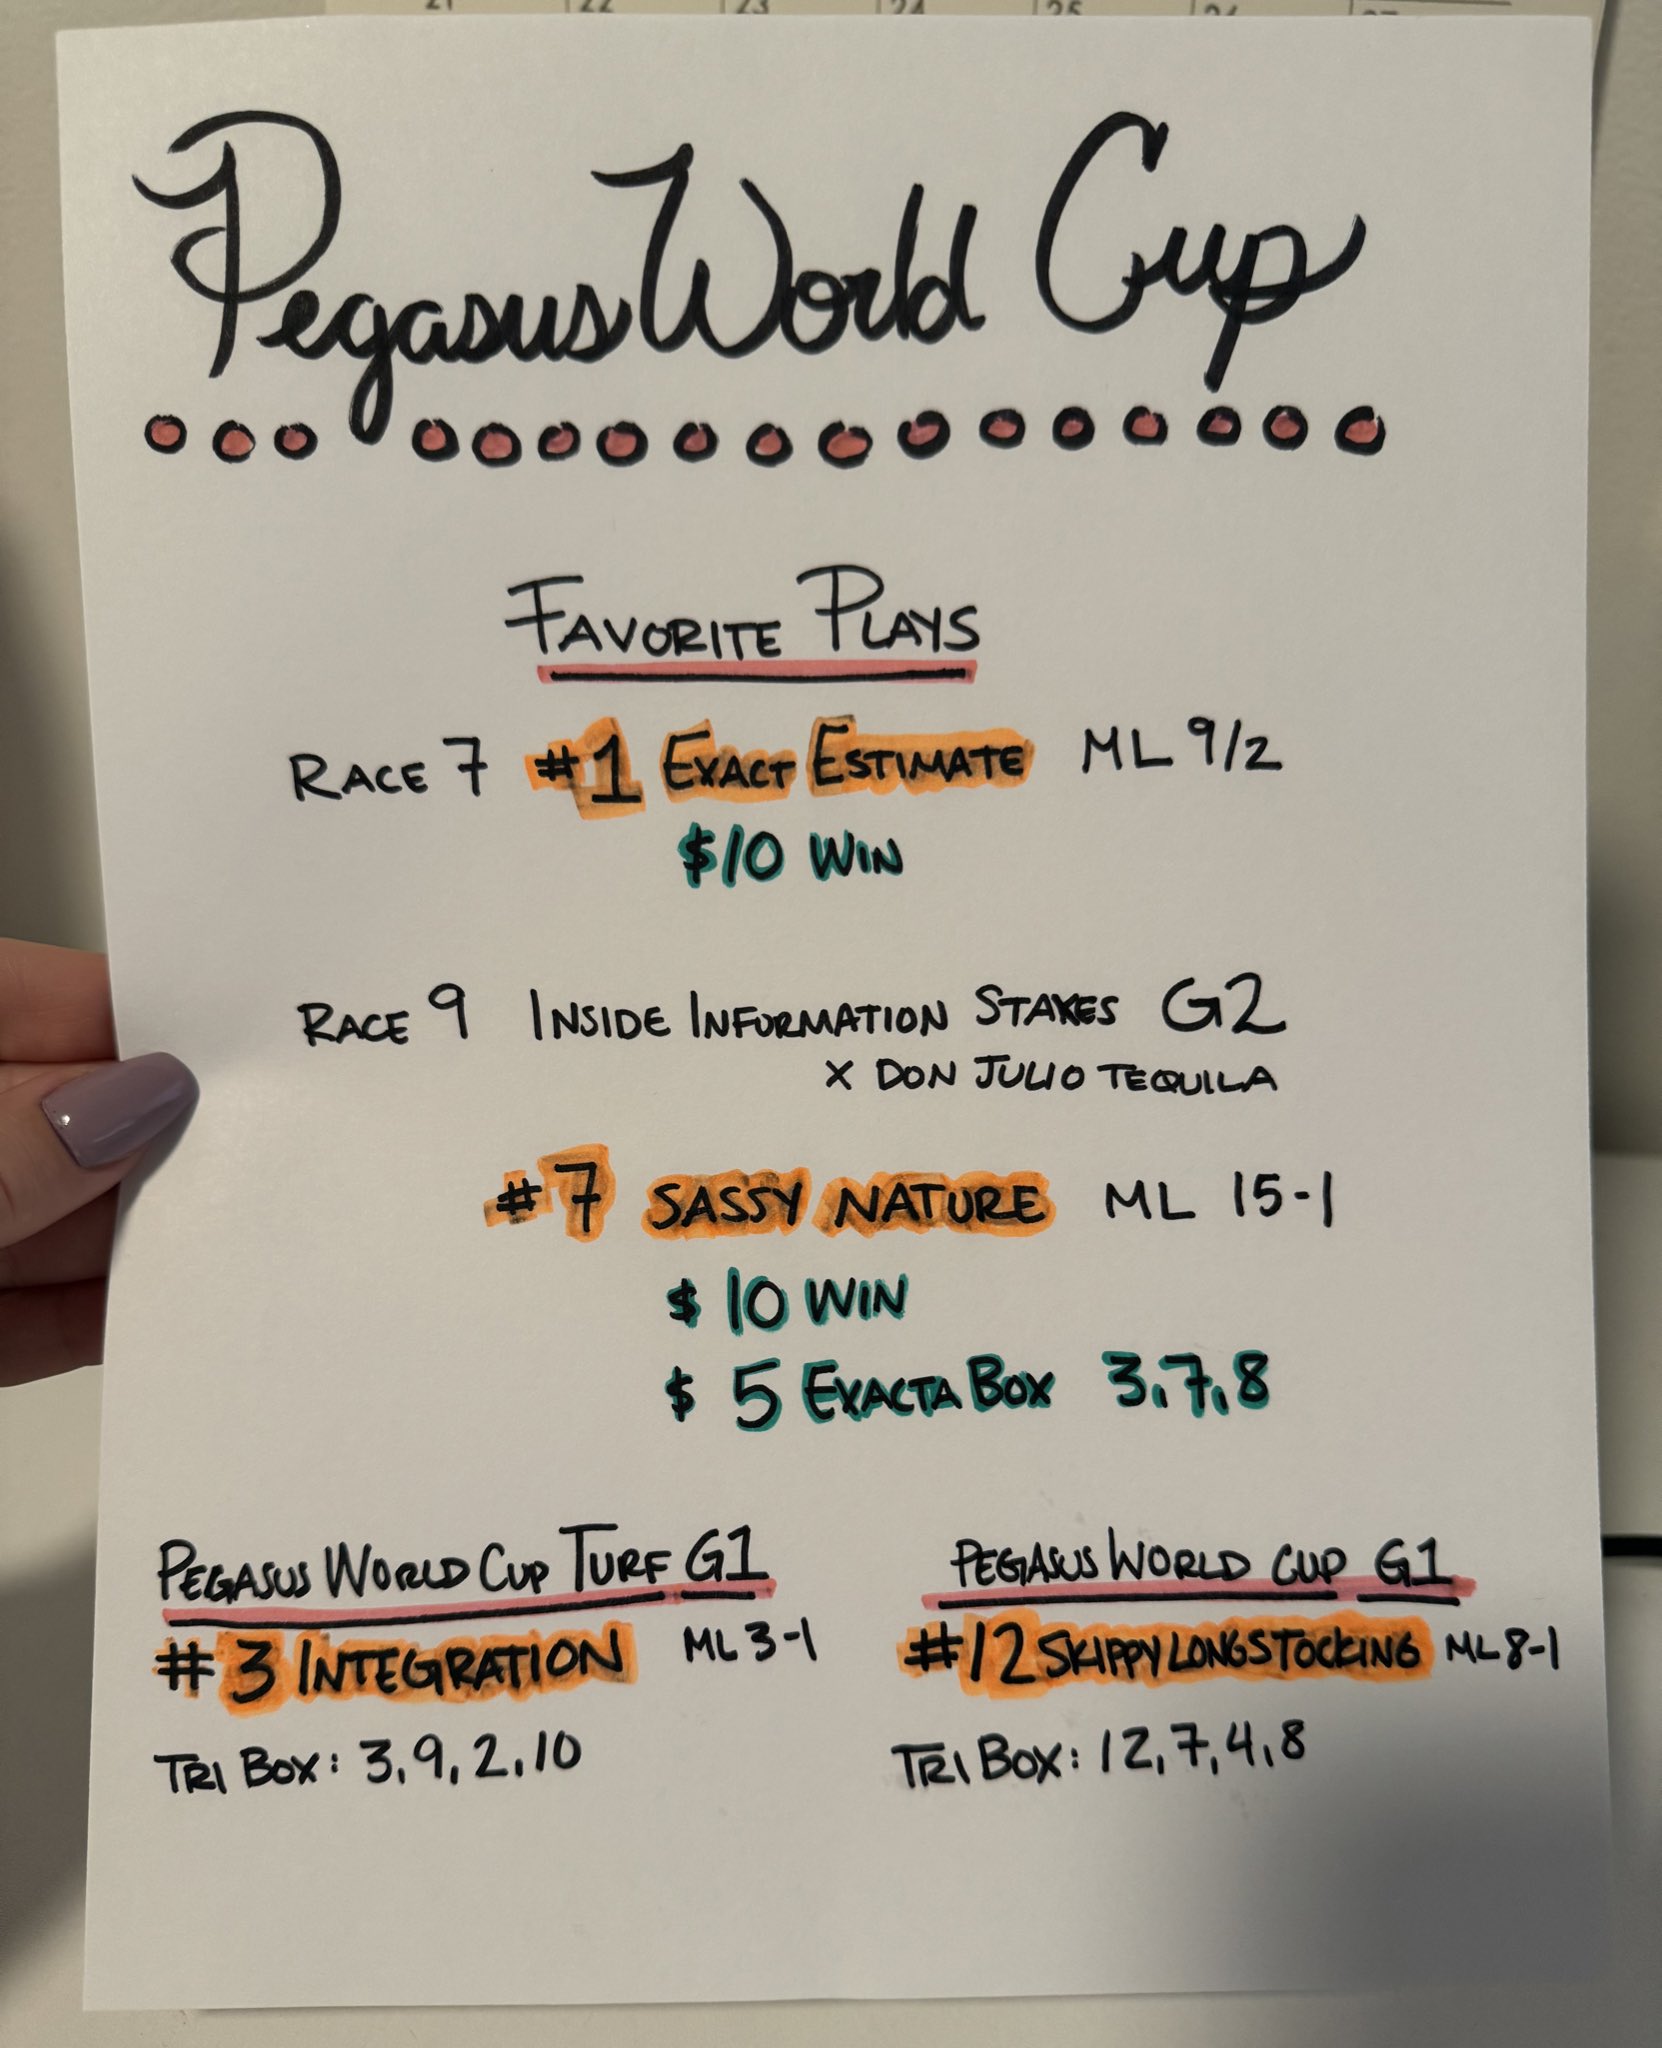 21 22 23 24 25 26 27
Pegasus World Cup
FAVORITE PLAYS
RACE 7 #1 EXACT ESTIMATE ML 9/2
$10 WIN
RACE 9 INSIDE INFORMATION STAKES G2
X DON JULIO TEQUILA
#7 SASSY NATURE ML 15-1
$10 WIN
$5 EXACTA BOX 3,7,8
PEGASUS WORLD CUP TURF G1
#3 INTEGRATION ML 3-1
TRI BOX: 3, 9, 2, 10
PEGASUS WORLD CUP G1
#12 SKIPPYLONGSTOCKING ML 8-1
TRI BOX: 12, 7, 4, 8